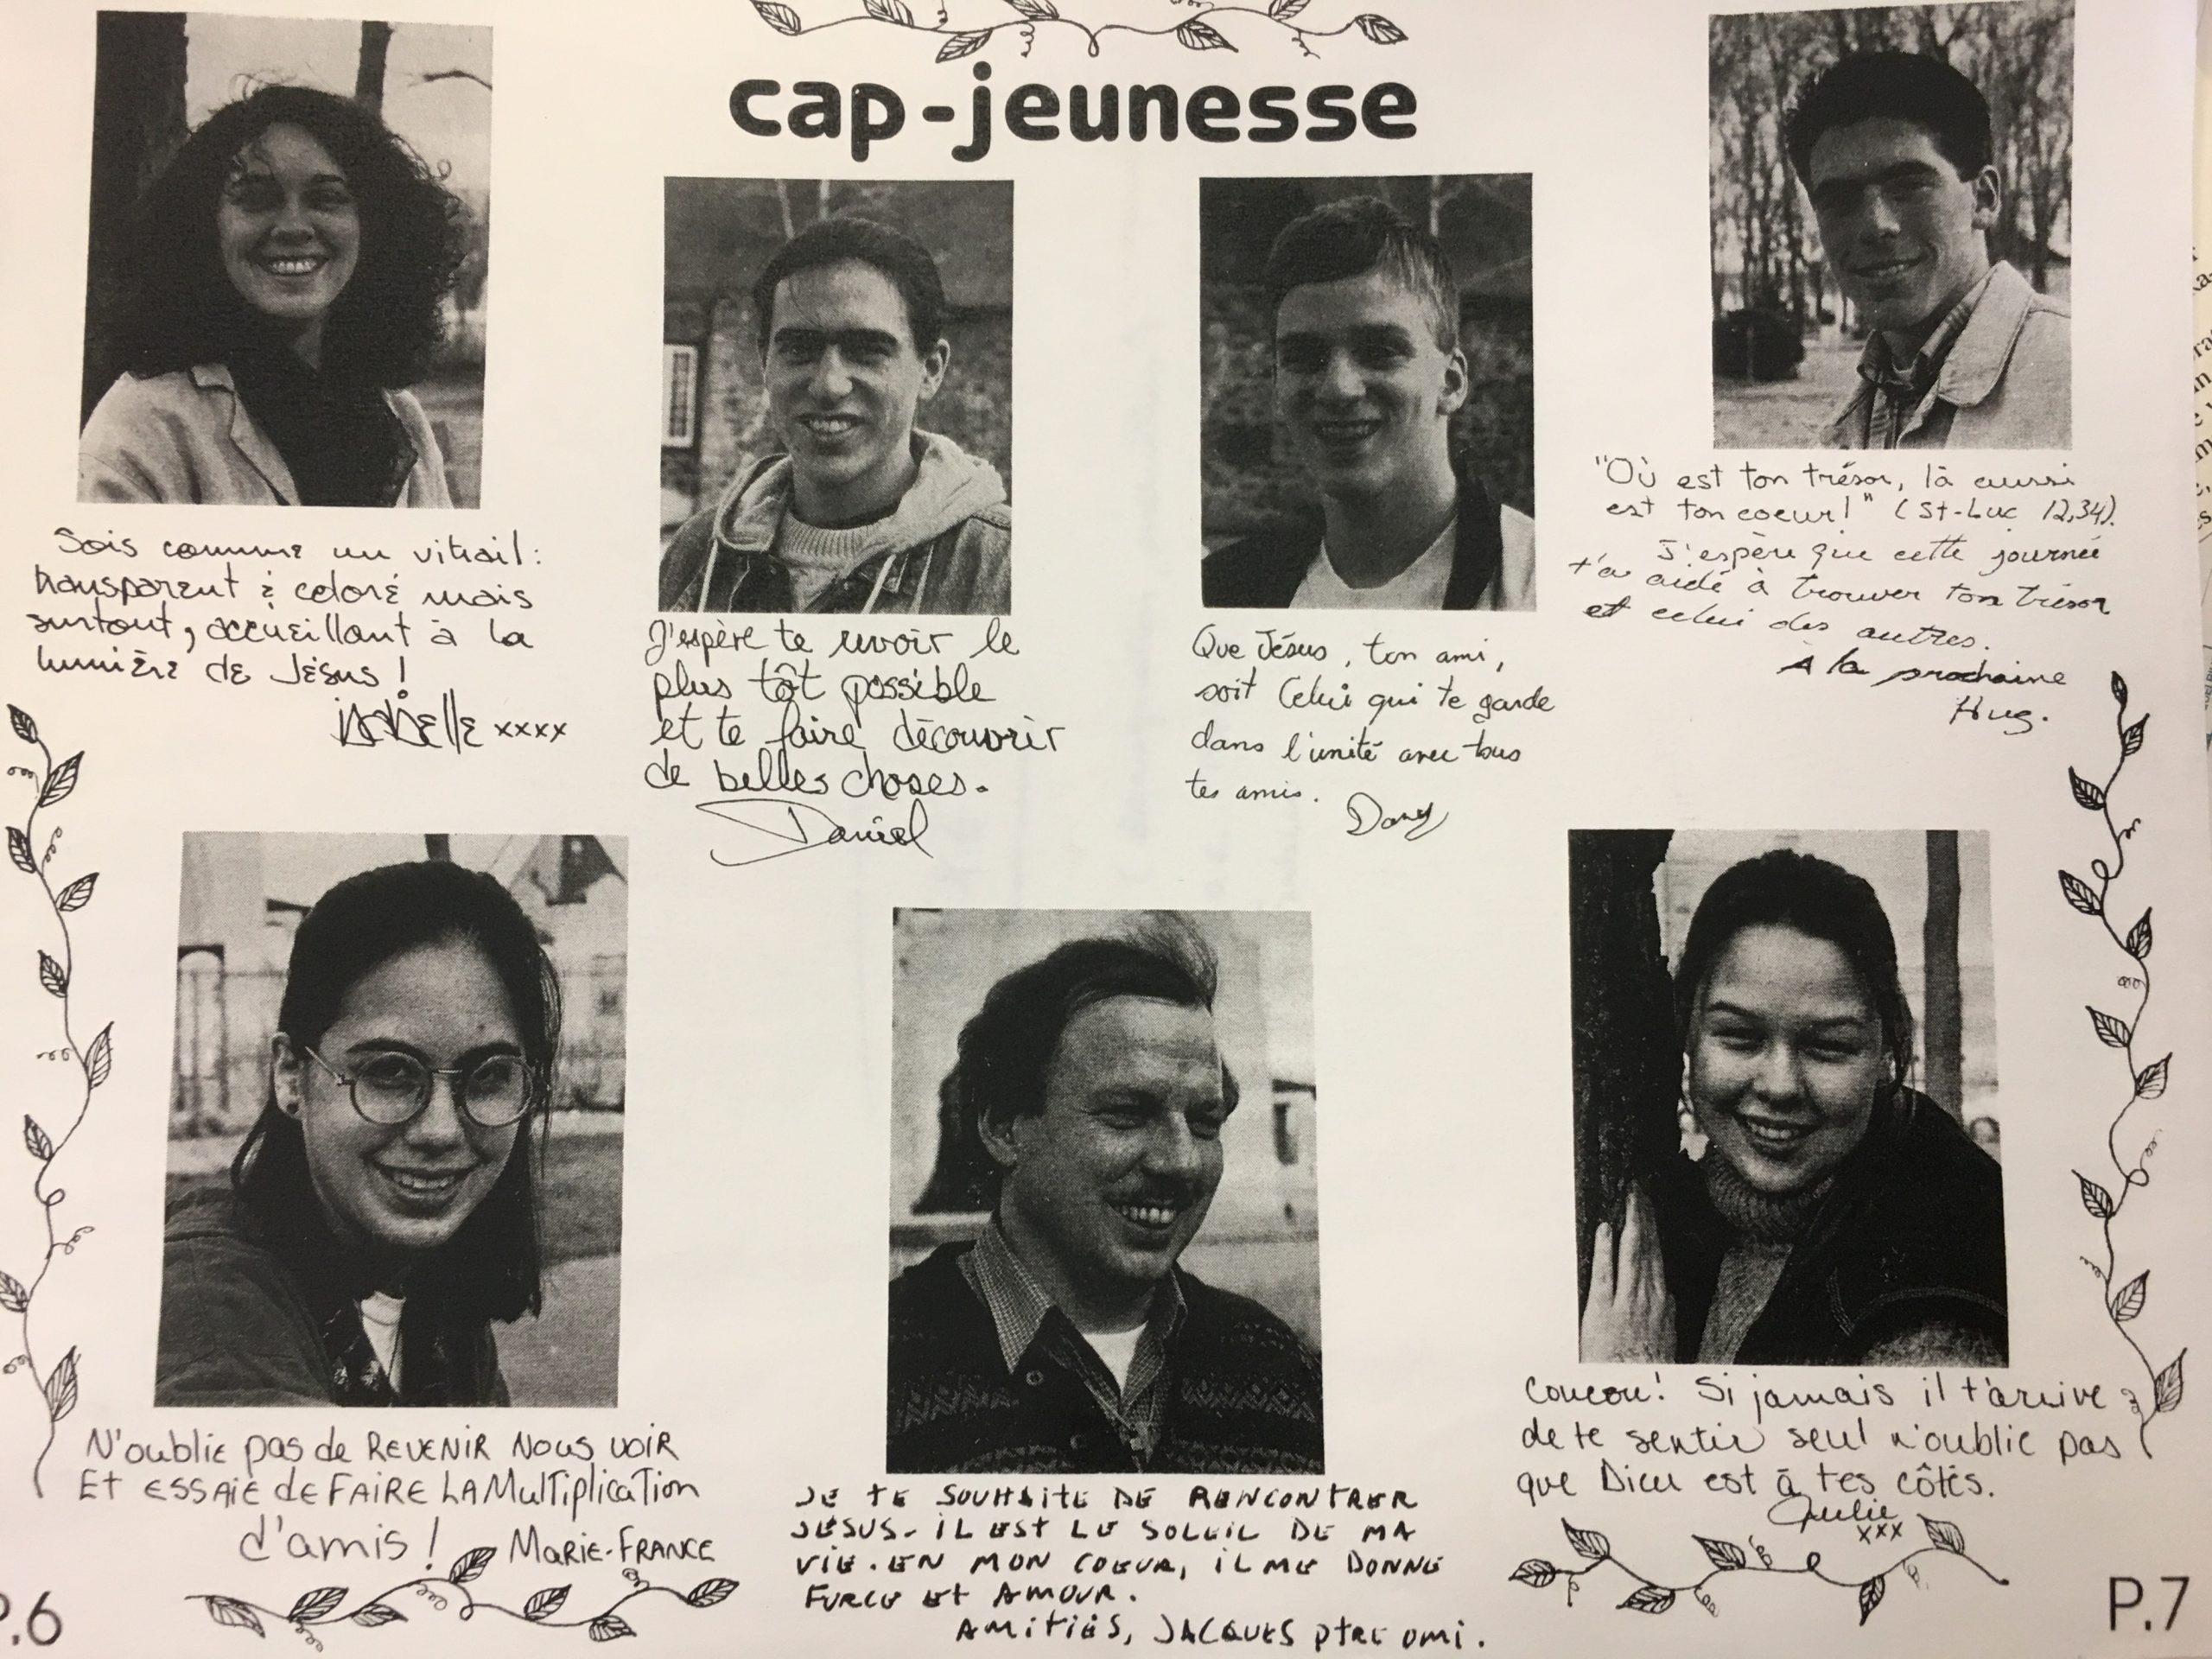 cap-jeunesse
Sois comme un vitrail:
transparent & coloré mais
surtout, accueillant à la
lumière de Jésus!
isabelle xxxx
J'espère te revoir le
plus tôt possible
et te faire découvrir
de belles choses.
Daniel
Que Jésus, ton ami,
soit Celui qui te garde
dans l'unité avec tous
tes amis.
Dany
"Où est ton trésor, là aussi
est ton coeur!" (St-Luc 12,34).
J'espère que cette journée
t'a aidé à trouver ton trésor
et celui des autres.
À la prochaine
Hug.
N'oublie pas de REVENIR NOUS VOIR
Et ESSAIE de FAIRE LA MultiplicaTion
d'amis!
MARIE-FRANCE
JE TE SOUHAITE DE RENCONTRER
JÉSUS. IL EST LE SOLEIL DE MA
VIE. EN MON COEUR, IL ME DONNE
FORCE ET AMOUR.
AMITIÉS, JACQUES ptre omi.
Coucou! Si jamais il t'arrive
de te sentir seul n'oublie pas
que Dieu est à tes côtés.
Julie
xxx
P.6
P.7